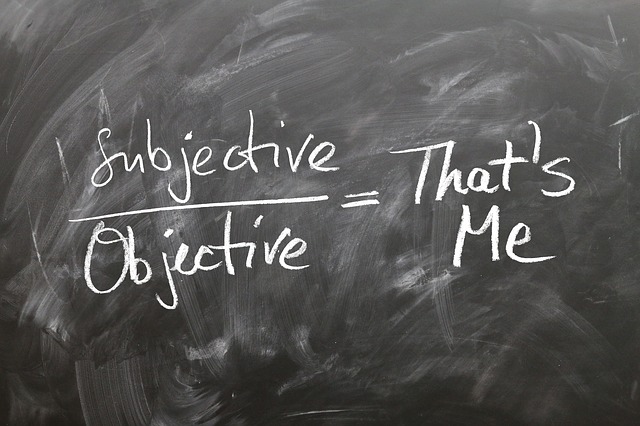 Subjective
Objective
=
That's
Me